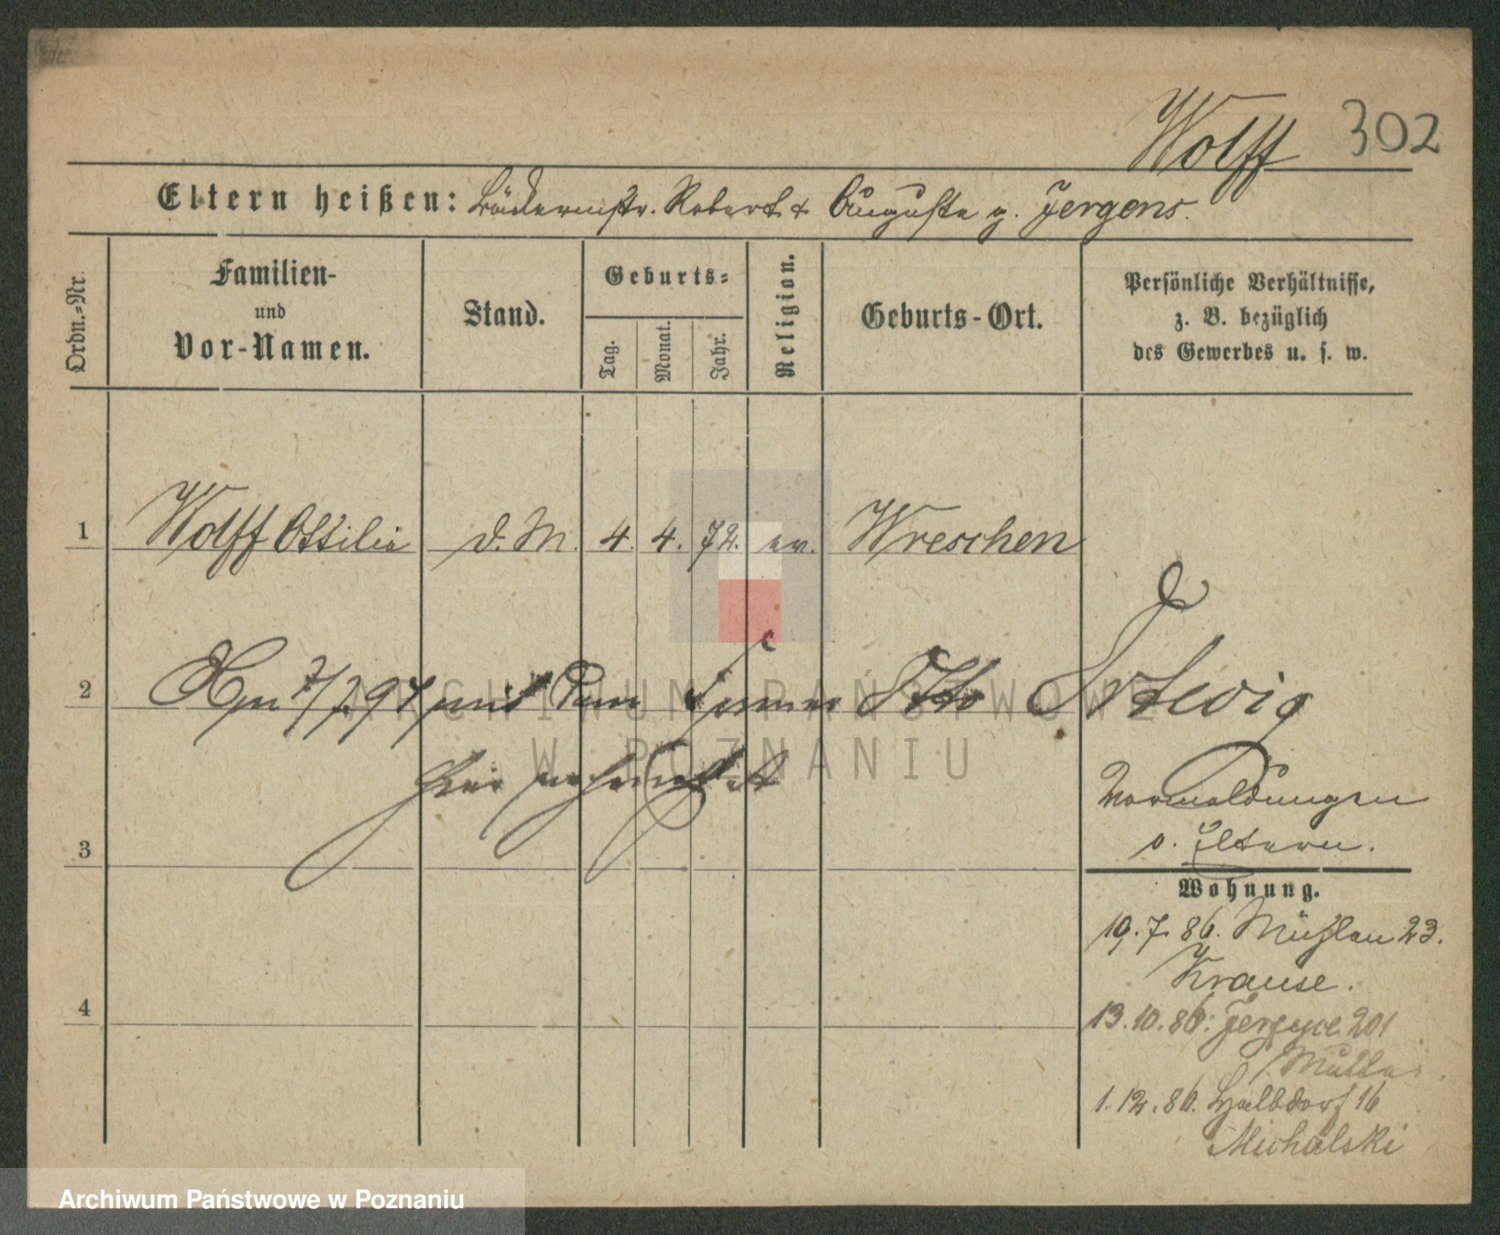 Wolff 302
Eltern heißen: Bäckermstr. Robert & Auguste g. Jergens.
Ordn.-Nr.
Familien-
und
Vor-Namen.
Stand.
Geburts-
Tag.
Monat.
Jahr.
Religion.
Geburts-Ort.
Persönliche Verhältnisse,
z. B. bezüglich
des Gewerbes u. s. w.
1 Wolff Ottilie d. M. 4. 4. 72. ev. Wreschen
2 Am 7/7.94 mit dem Otto
hier verheirathet
Vormeldungen
s. Eltern.
3
Wohnung.
19.7.86. Mühlen 23.
Krause.
4
13.10.86. 201
Mutter
1.12.86. Halbdorf 16
Michalski
ARCHIWUM PAŃSTWOWE
W POZNANIU
Archiwum Państwowe w Poznaniu